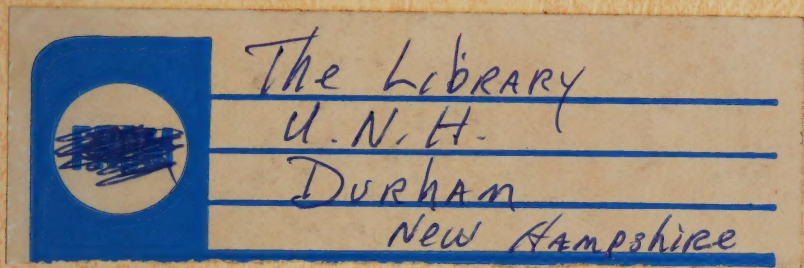 The LibRARY
U.N.H.
DuRhAm
New HAmpshiRe